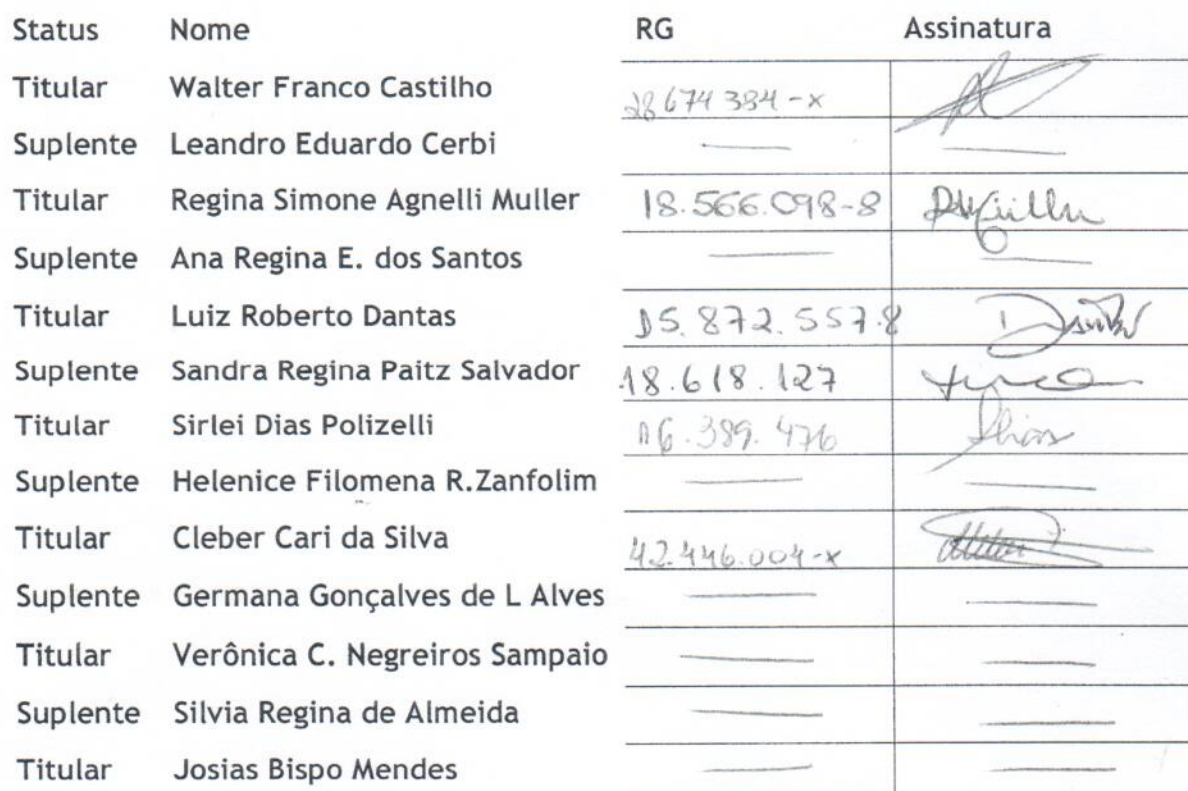 Status Nome RG Assinatura
Titular Walter Franco Castilho 28 674 384-x
Suplente Leandro Eduardo Cerbi
Titular Regina Simone Agnelli Muller 18.566.098-8 RMüller
Suplente Ana Regina E. dos Santos
Titular Luiz Roberto Dantas 15.872.557.8 Dantas
Suplente Sandra Regina Paitz Salvador 18.618.127
Titular Sirlei Dias Polizelli 16.389.476 SDias
Suplente Helenice Filomena R.Zanfolim
Titular Cleber Cari da Silva 42.446.004-x
Suplente Germana Gonçalves de L Alves
Titular Verônica C. Negreiros Sampaio
Suplente Silvia Regina de Almeida
Titular Josias Bispo Mendes